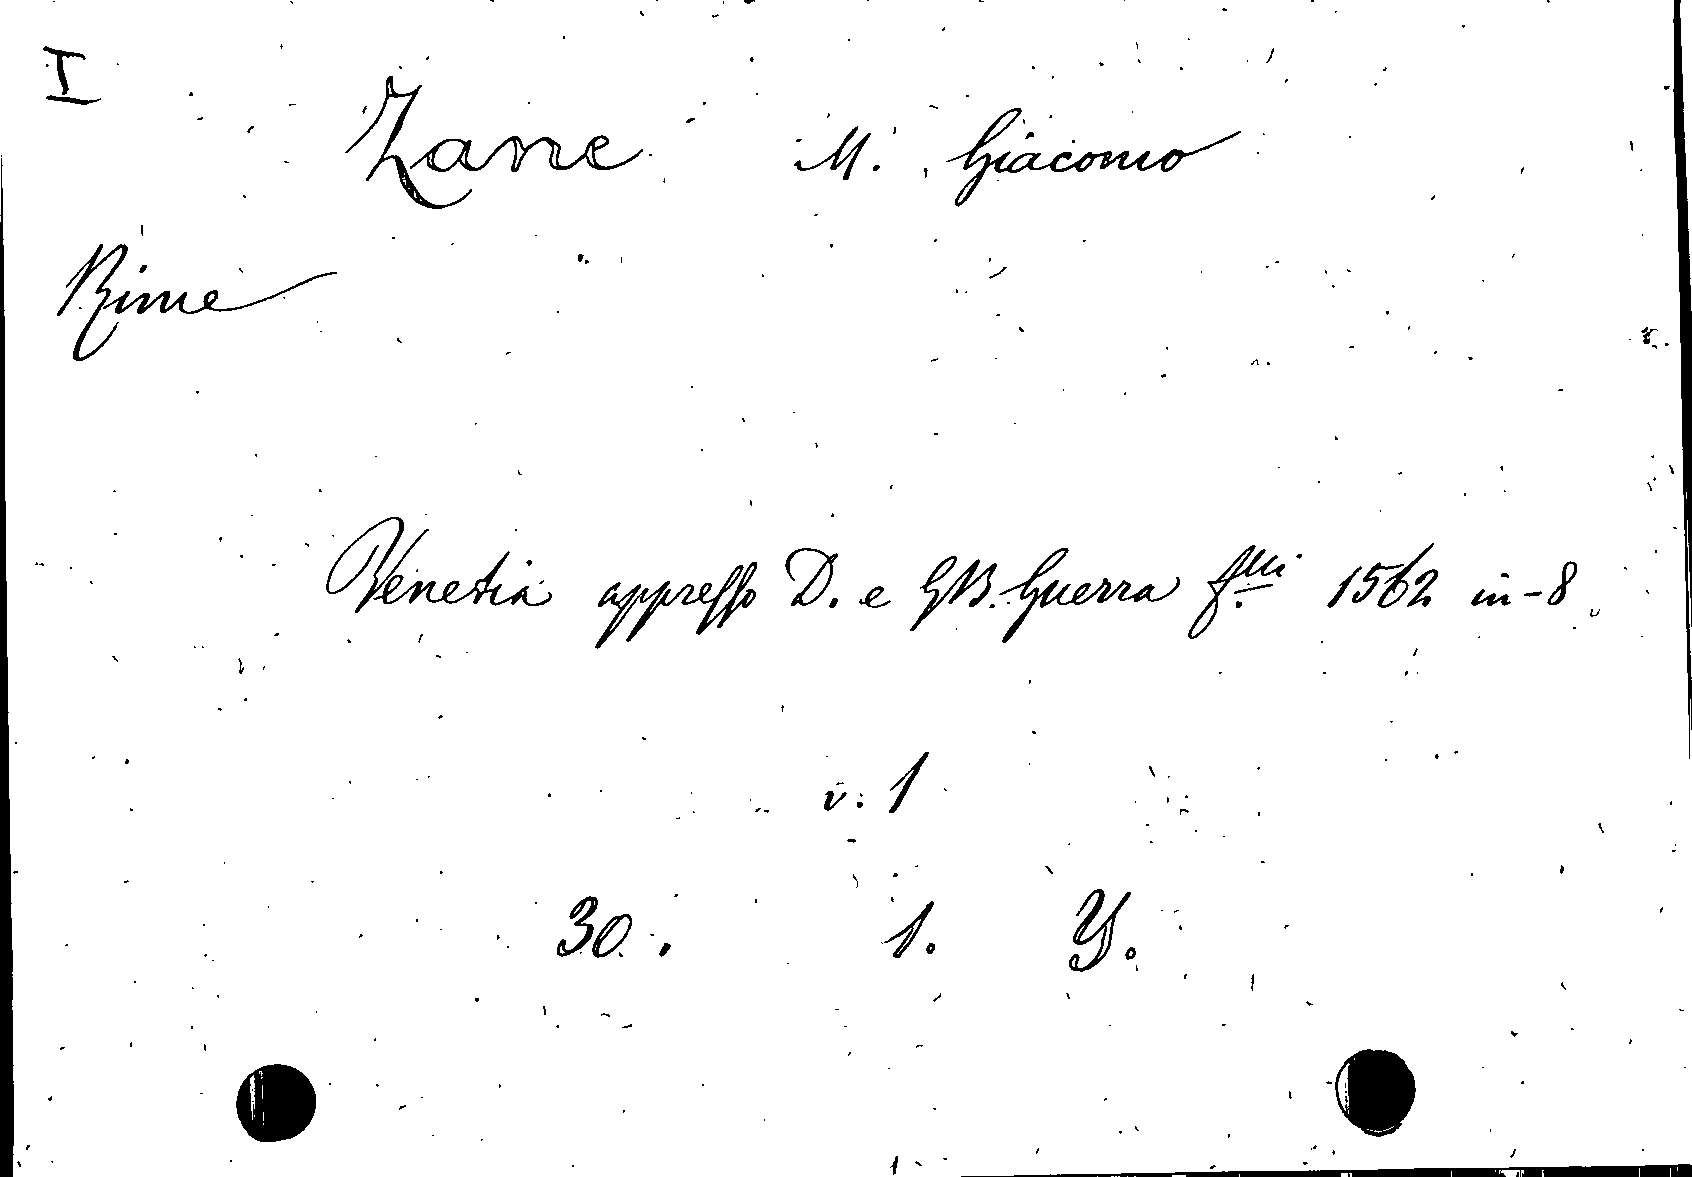 I
Zane M. Giacomo
Rime
Venetia appresso D. e GB. Guerra f.lli 1562 in-8
v. 1
30. 1. Y.